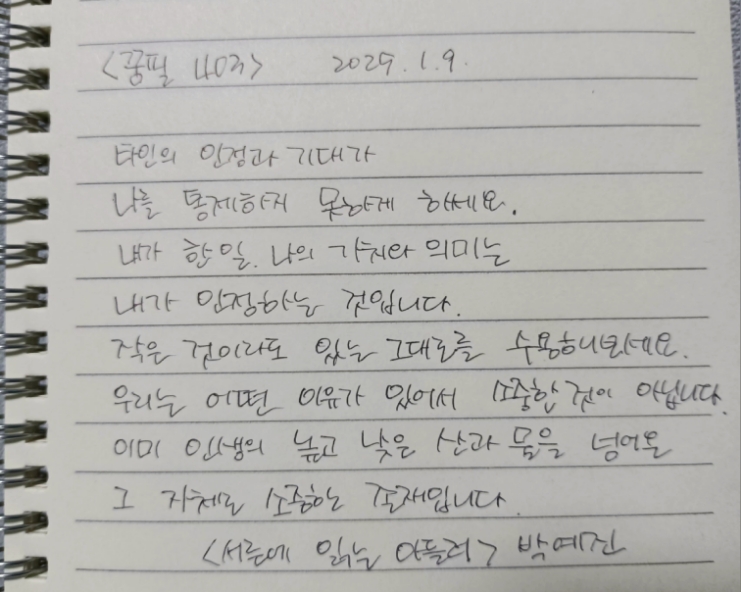 <꿈필 40회> 2025.1.9.
타인의 인정과 기대가
나를 통제하지 못하게 하세요.
내가 한 일. 나의 가치와 의미는
내가 인정하는 것입니다.
작은 것이라도 있는 그대로를 수용해보세요.
우리는 어떤 이유가 있어서 소중한 것이 아닙니다.
이미 인생의 높고 낮은 산과 물을 넘어온
그 자체로 소중한 존재입니다.
<서른에 읽는 아들러> 박예진